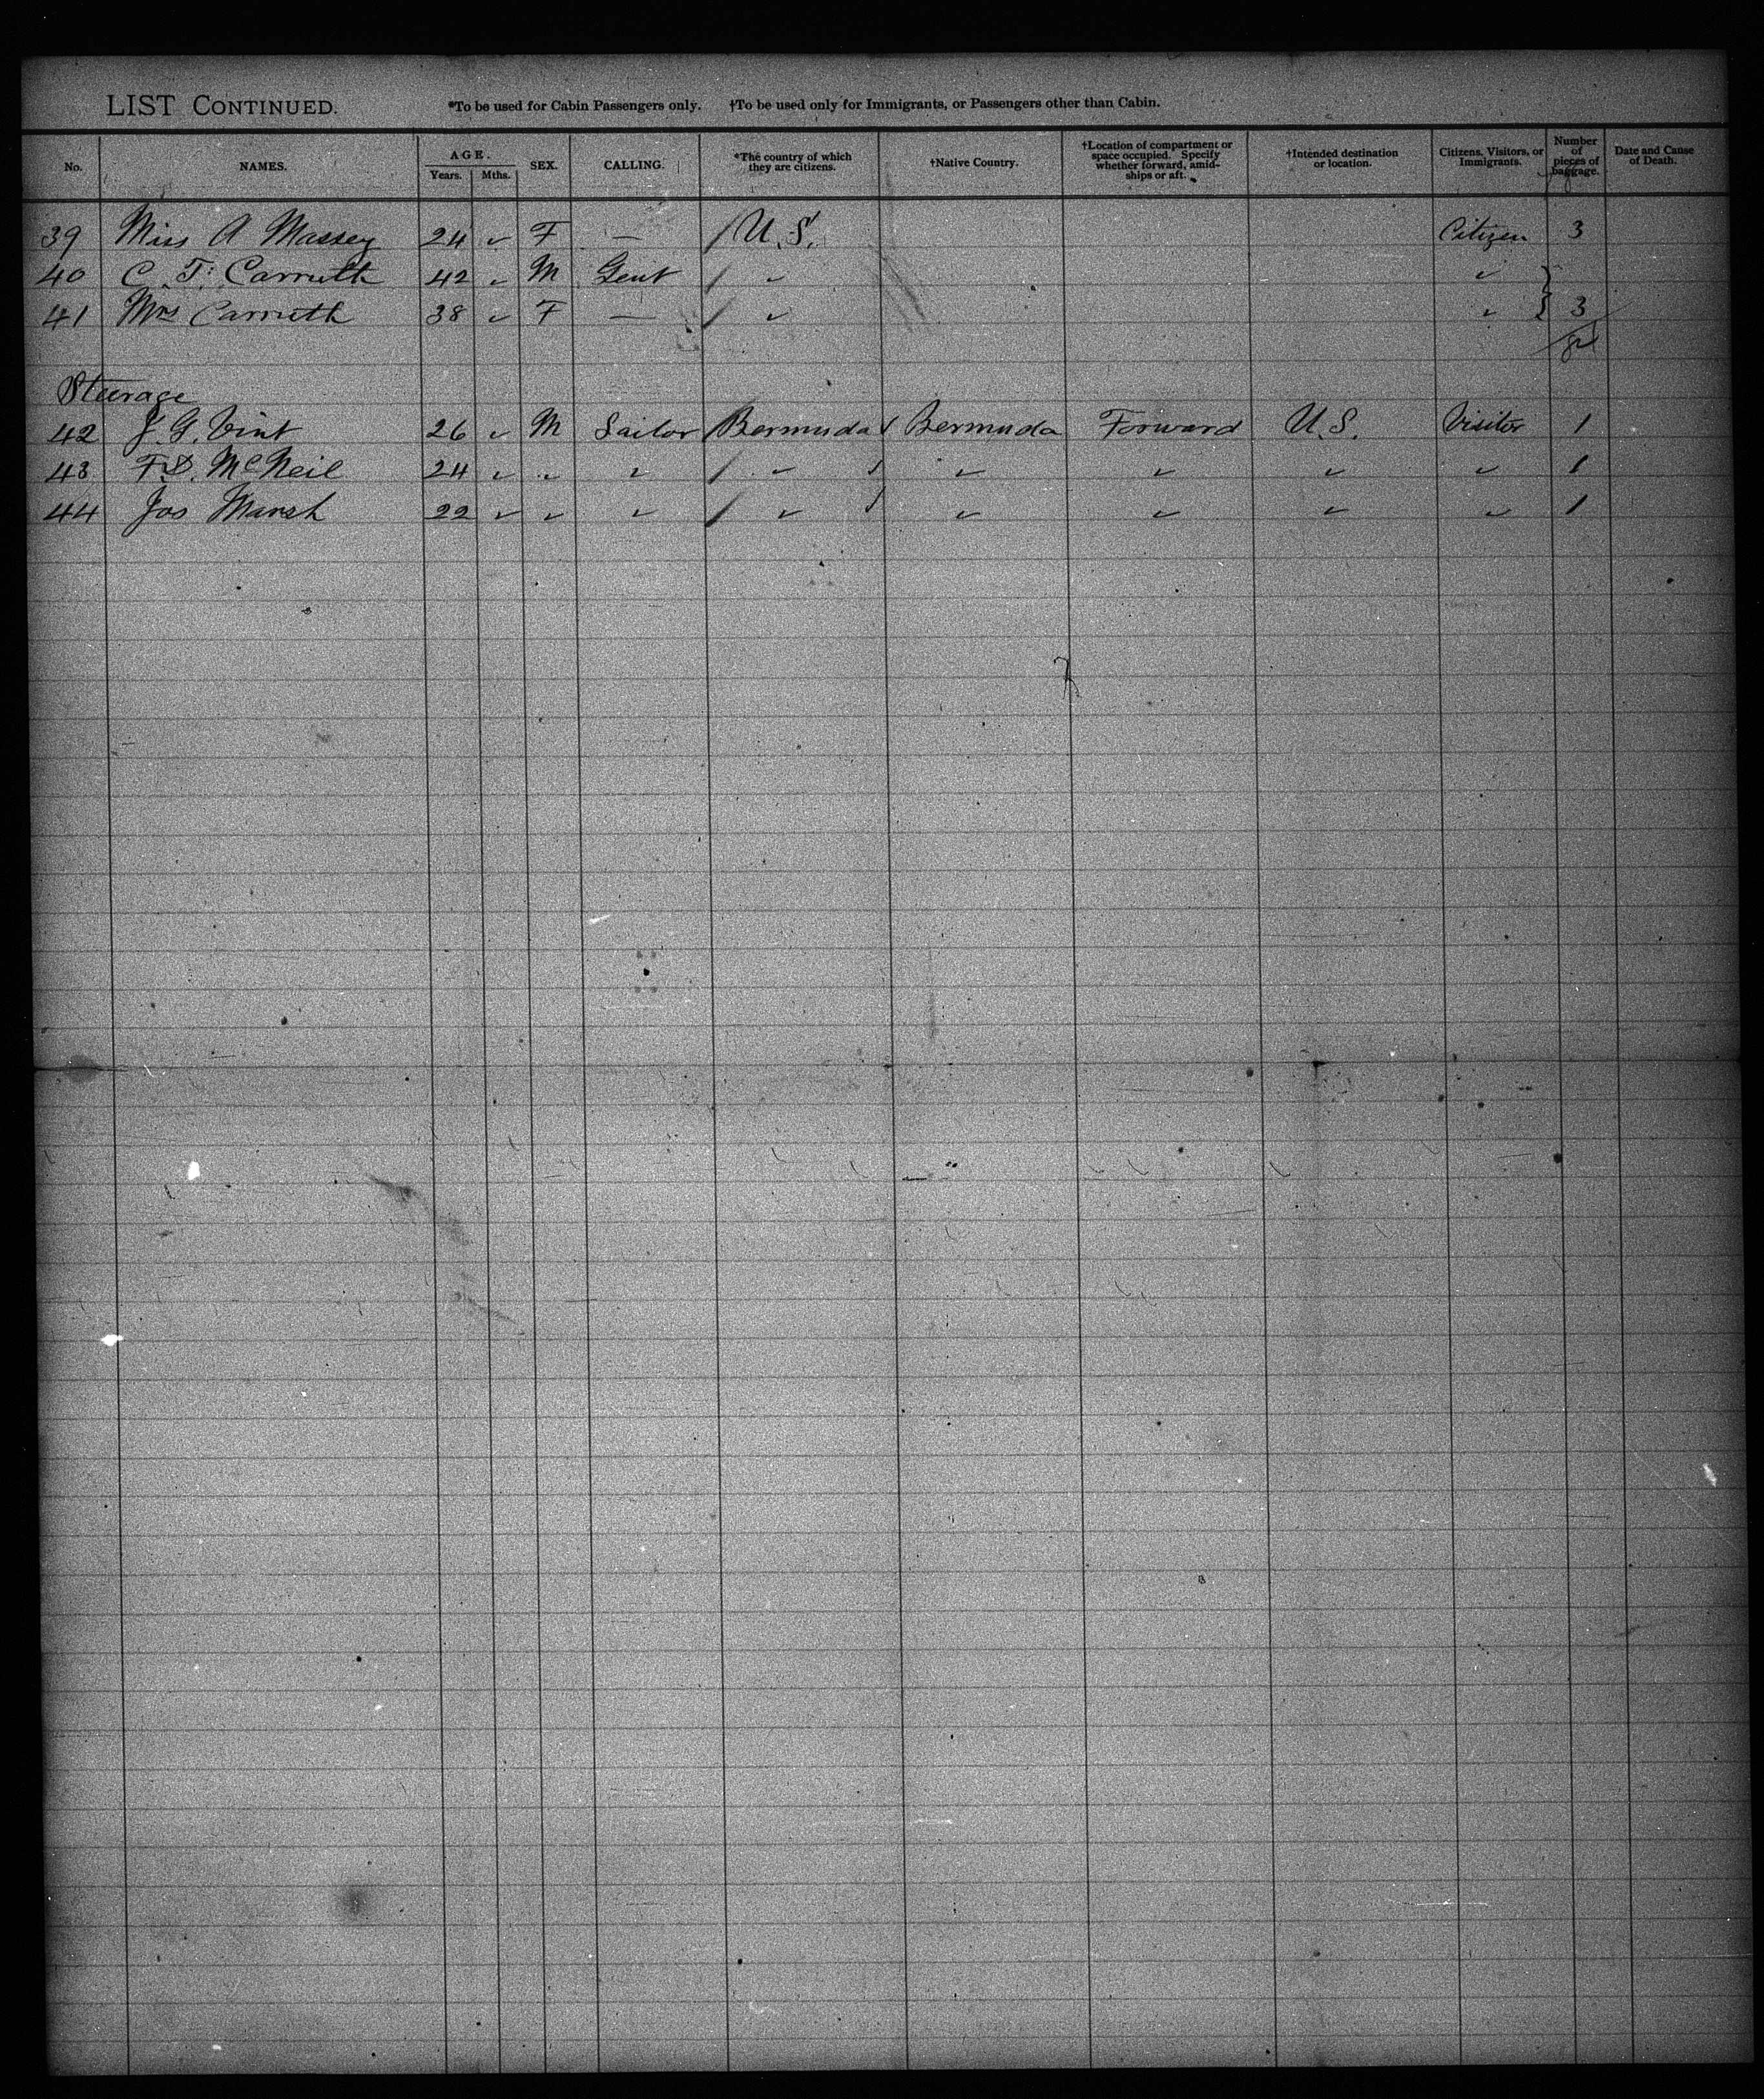 LIST CONTINUED. *To be used for Cabin Passengers only. †To be used only for Immigrants, or Passengers other than Cabin.
No. NAMES. AGE. Years. Mths. SEX. CALLING. *The country of which they are citizens. †Native Country. †Location of compartment or space occupied. Specify whether forward, amidships or aft. †Intended destination or location. Citizens, Visitors, or Immigrants. Number of pieces of baggage. Date and Cause of Death.
39 Miss A Massey 24 ✓ F — / U.S. Citizen 3
40 C. T. Carruth 42 ✓ M Gent / ✓ ✓
41 Mrs Carruth 38 ✓ F — / ✓ ✓ } 3
Steerage
42 J. G. Vint 26 ✓ M Sailor / Bermuda / Bermuda Forward U.S. Visitor 1
43 McNeil 24 ✓ ✓ ✓ / ✓ / ✓ ✓ ✓ ✓ 1
44 Jos Marsh 22 ✓ ✓ ✓ / ✓ / ✓ ✓ ✓ ✓ 1